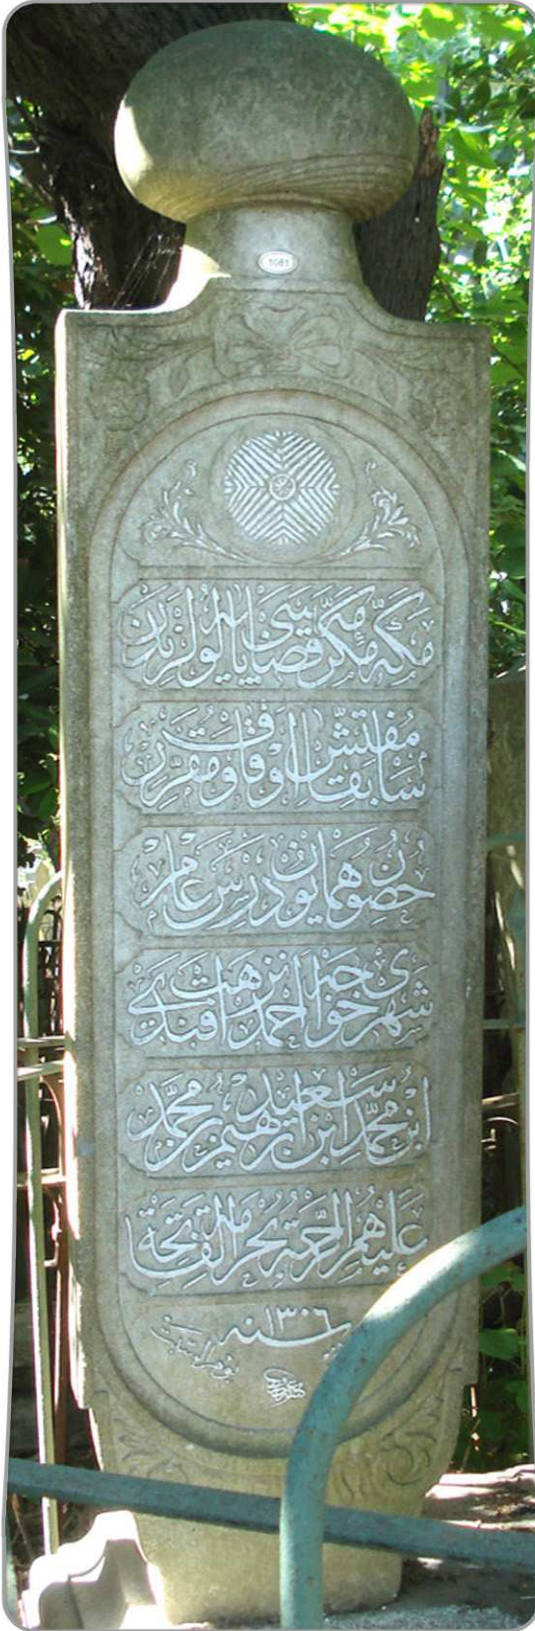 مكهٔ مكرمه قضاسى پايه لولرندن
سابقا مفتش اوقاف و مقرر
حضور همايون درس عام
شهرى خواجه احمد نزهت افندى
ابن محمد سعيد ابن ابرهيم بن محمد
عليهم الرحمة بحرمة الفاتحة
سنه ١٣٠٦